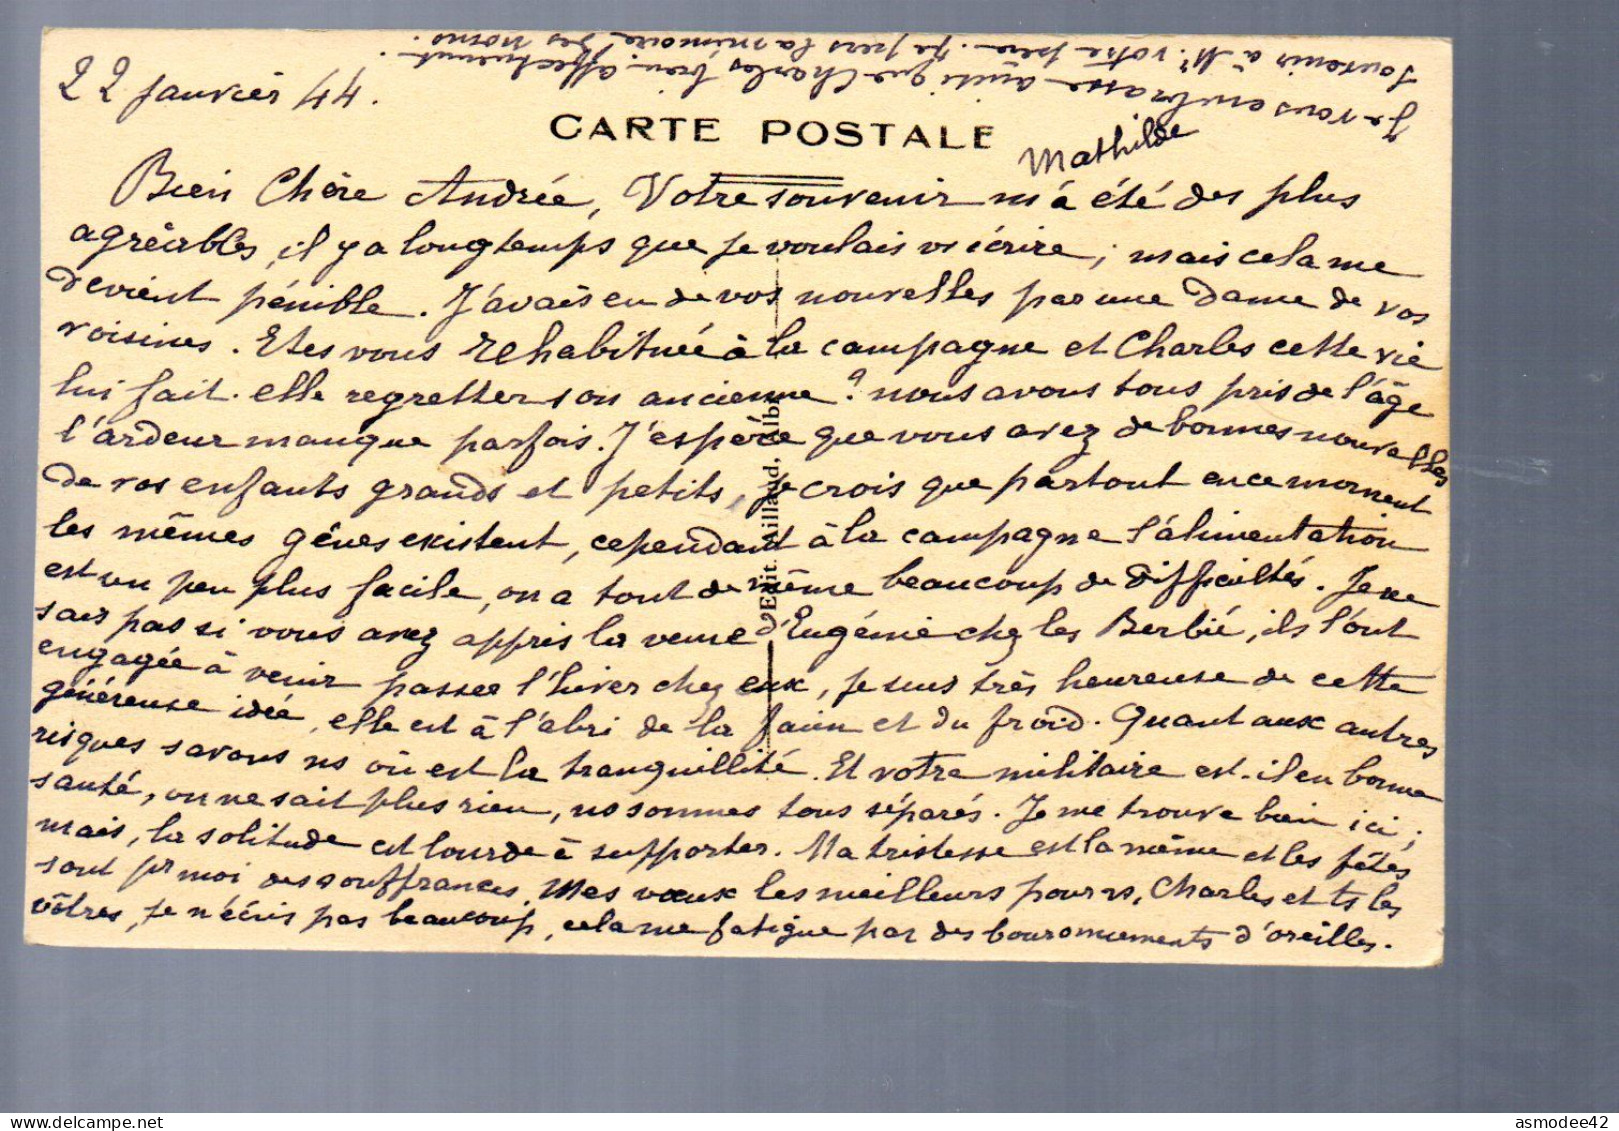 22 janvier 44.
CARTE POSTALE
Bien Chère Andrée, Votre souvenir m'a été des plus
agréables, il y a longtemps que je voulais vs écrire, mais cela me
devient pénible. J'avais eu de vos nouvelles par une Dame de vos
voisines. Etes vous réhabituée à la campagne et Charles cette vie
lui fait-elle regretter son ancienne? nous avons tous pris de l'âge
l'ardeur manque parfois. J'espère que vous avez de bonnes nouvelles
de vos enfants grands et petits, je crois que partout en ce moment
les mêmes gênes existent, cependant à la campagne l'alimentation
est un peu plus facile, on a tout de même beaucoup de difficultés. Je ne
sais pas si vous avez appris la venue d'Eugénie chez les Berbié, ils l'ont
engagée à venir passer l'hiver chez eux, je suis très heureuse de cette
généreuse idée, elle est à l'abri de la faim et du froid. Quant aux autres
risques savons ns où est la tranquillité. Et votre militaire est-il en bonne
santé, on ne sait plus rien, ns sommes tous séparés. Je me trouve bien ici;
mais, la solitude est lourde à supporter. Ma tristesse est la même et les fêtes
sont pr moi des souffrances. Mes vœux les meilleurs pour vs, Charles et ts les
vôtres, je n'écris pas beaucoup, cela me fatigue par des bouronnements d'oreilles.
Je vous embrasse ainsi que Charles bien affectueusement.
Souvenir à Mr votre père. Je perds la mémoire des noms.
Mathilde
d'Edit. Gaillard, Albi
asmodee42